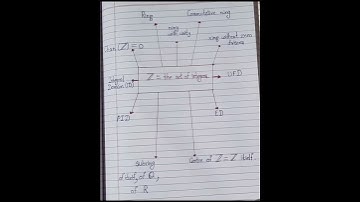 Ring
Commutative ring
ring
with unity
ring without zero
divisors
Char(Z) = 0
Z = the set of integers
Integral
Domain (ID)
UFD
PID
ED
Subring
of itself, of Q,
of R
Center of Z = Z itself.